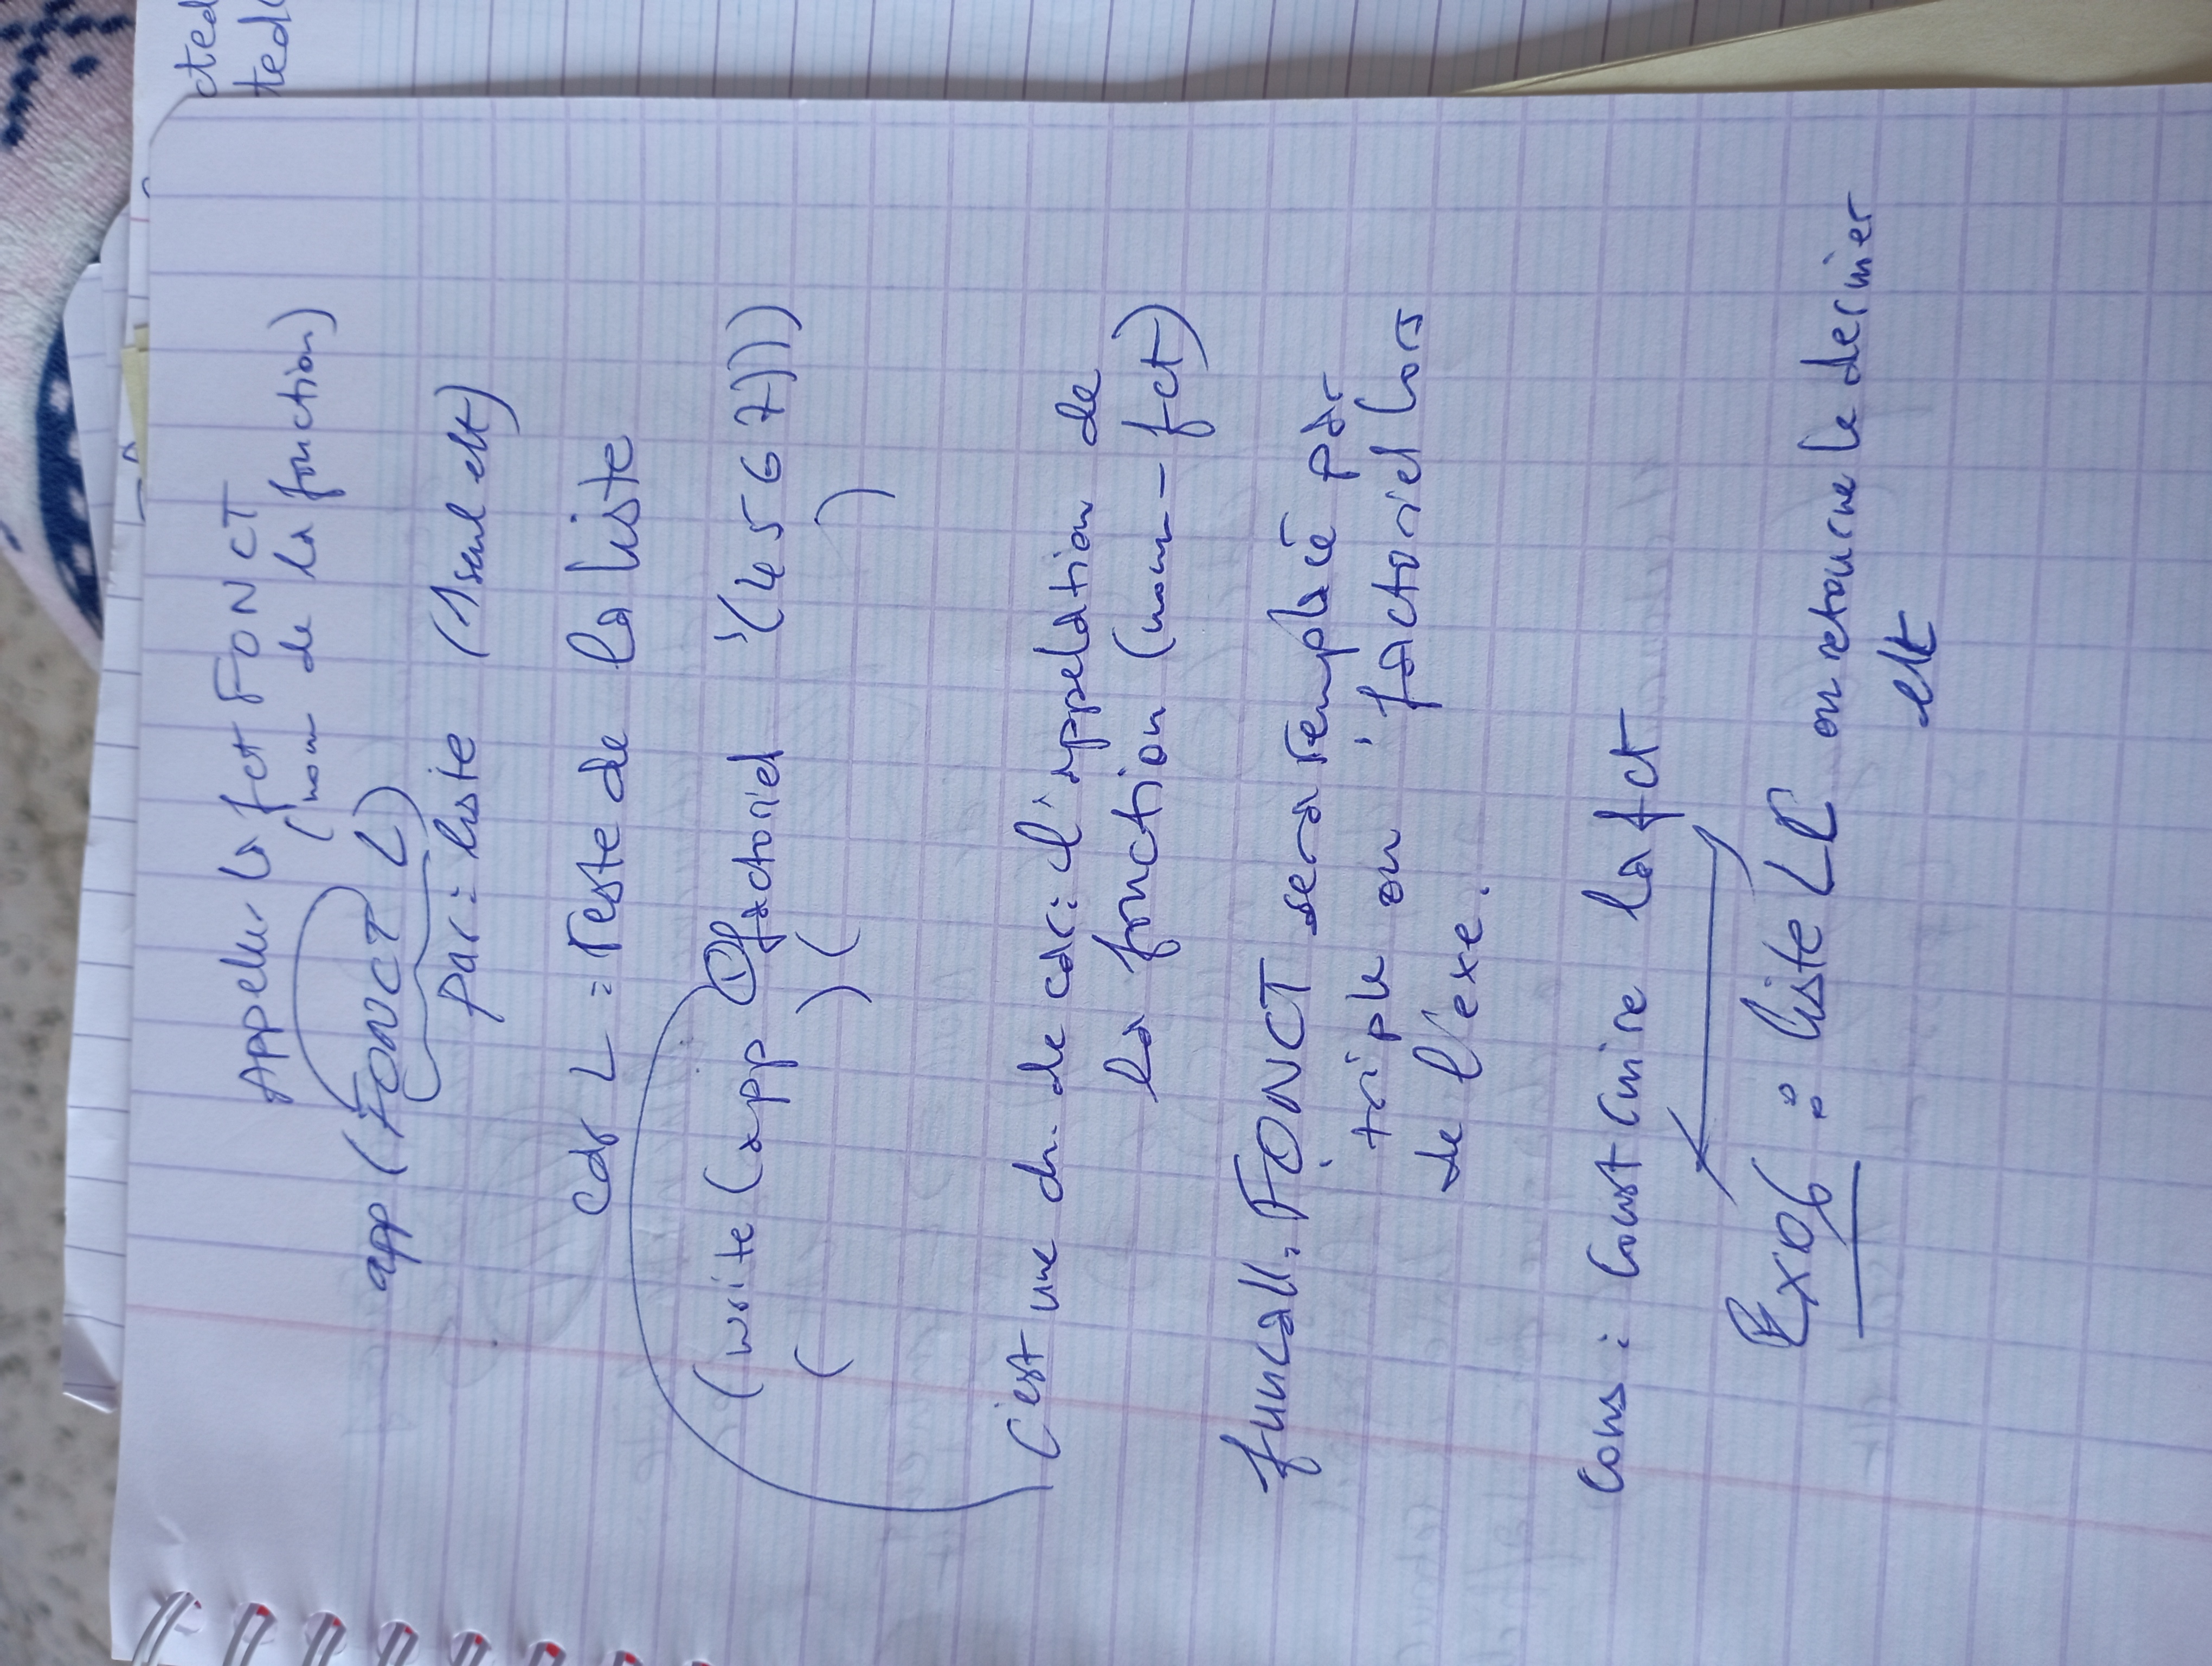 Appeler la fct FONCT
(nom de la fonction)
app (FONCT L)
par : liste (1 seul elt)
cdr L = reste de la liste
(write (app 'factoriel '(4 5 6 7)))
( ) ( )
C'est une ch. de car : l'appelation de
la fonction (nom-fct)
funcall : FONCT sera remplacé par
'triple ou 'factoriel lors
de l'exe.
cons : construire la fct
Exo6 : liste LC on retourne le dernier
elt
cted
ted(